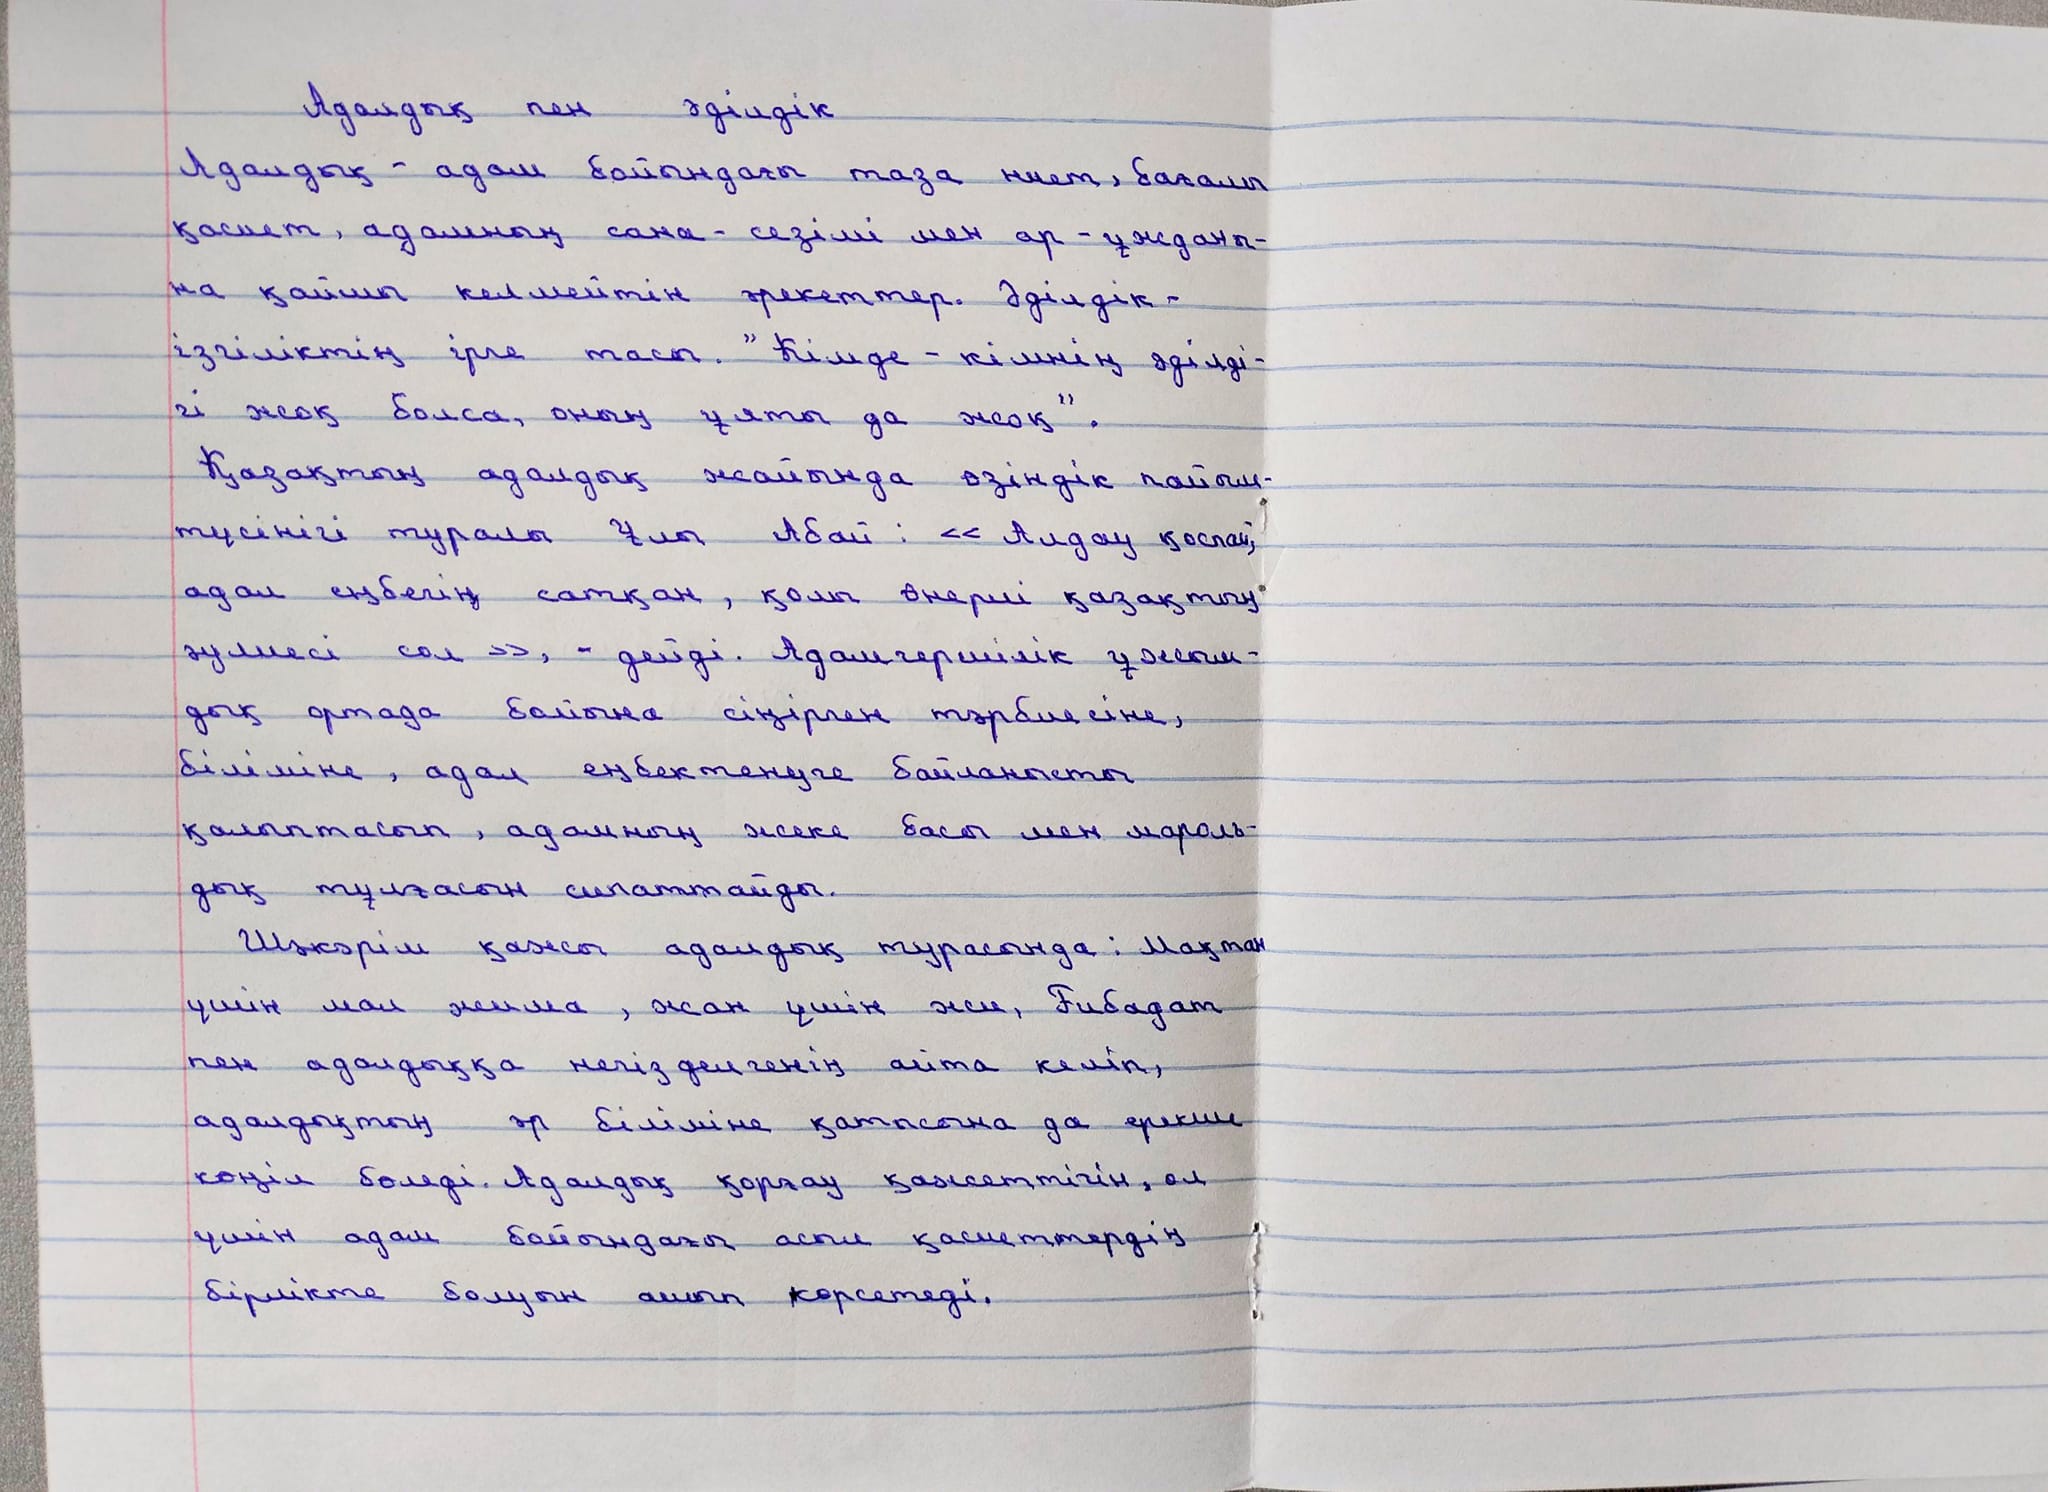 Адалдық пен әділдік
Адалдық - адам бойындағы таза ниет, бағалы
қасиет, адамның сана - сезімі мен ар - ұжданы-
на қайшы келмейтін әрекеттер. Әділдік -
ізгіліктің ірге тасы. "Кімде - кімнің әділді-
гі жоқ болса, оның ұяты да жоқ".
Қазақтың адалдық жайында өзіндік пайым-
түсінігі туралы Ұлы Абай: << Алдау қоспай,
адал еңбегің сатқан, қолы өнерлі қазақтың
әулиесі сол >>, - дейді. Адамгершілік ұжым-
дық ортада бойына сіңірген тәрбиесіне,
біліміне, адал еңбектенуге байланысты
қалыптасып, адамның жеке басы мен мараль-
дық тұлғасын сипаттайды.
Шәкәрім қажы адалдық турасында: Мақтан
үшін мал жима, жан үшін жи, Ғибадат
пен адалдыққа негізделгенің айта келіп,
адалдықтың әр біліміне қатысына да ерекше
көңіл бөледі. Адалдық қорғау қажеттігін, ол
үшін адам бойындағы асыл қасиеттердің
бірлікте болуын ашып көрсетеді.